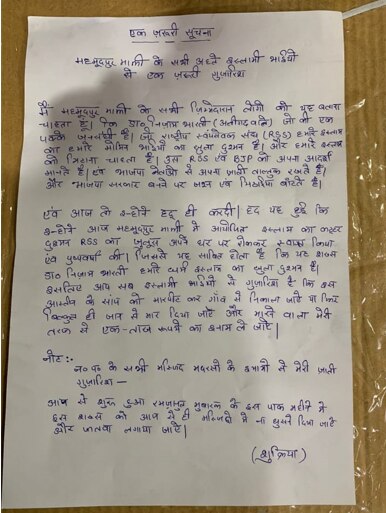 एक ज़रूरी सूचना
महमूदपुर माफी के सभी अहले इस्लामी भाईयो
से एक ज़रूरी गुज़ारिश
मैं महमूदपुर माफी के सभी जिम्मेदारान लोगो को यह बताना
चाहता हूँ। कि डा० निज़ाम भारती (अलीगढ वाले) जो की एक
पक्के जनसंघी है। जो राष्ट्रीय स्वयंसेवक संघ (RSS) हमारे इस्लाम
का हमारे मोमिन भाईयो का खुला दुश्मन है। और हमारे इस्लाम
को मिटाना चाहता है। उस RSS एवं BJP को अपना आदर्श
मानते है। एवं भाजपा नेताओ से अपना ज़ाती ताल्लुक रखते है।
और भाजपा सरकार बनने पर जश्न एवं मिठाईया बाँटते है।
एवं आज तो इन्होने हद ही करदी। हद यह हुई कि
इन्होने आज महमूदपुर माफी में आयोजित इस्लाम का कट्टर
दुश्मन RSS का जुलूस अपने घर पर रोककर स्वागत किया
एवं पुष्पवर्षा की। जिससे यह साबित होता है कि यह शख्स
डा० निज़ाम भारती हमारे धर्म इस्लाम का खुला दुश्मन है।
इसलिए आप सब इस्लामी भाईयो से गुज़ारिश है कि इस
आस्तीन के सांप को मारपीट कर गांव से निकाला जाये या फिर
बिल्कुल ही जान से मार दिया जाऐ और मारने वाला मेरी
तरफ से एक-लाख रूपये का इनाम ले जाऐ।
नोट:-
न० प० के सभी मस्जिद मदरसो के इमामो से मेरी ज़ाती
गुज़ारिश —
आज से शुरू हुआ रमज़ानुल मुबारक के इस पाक महीने में
इस शख्स को आज से ही मस्जिदो में ना घुसने दिया जाऐ
और फतवा लगाया जाऐ।
(शुक्रिया)